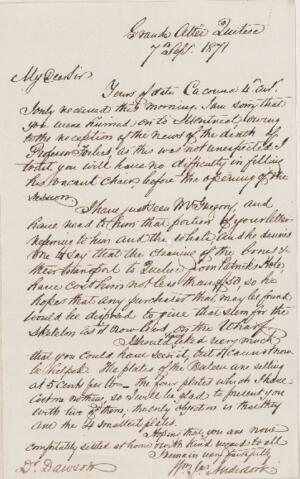 Grande Allée Quebec
7th Sept. 1871
My Dear Sir
Yours of date Cacouna 4th inst.
I only received this morning. I am sorry that
you were hurried on to Montreal owing
to the reception of the news of the death of
Professor as this was not unexpected I
you will have no difficulty in filling
his vacant chair, before the opening of the
session.
I have just seen Mr Gregory, and
have read to him that portion of your letter
referring to him and the whale, and he desires
me to say that the cleaning of the bones &
their transport to Quebec from
have cost him not less than $50, so he
hopes that any purchaser that may be found
would be disposed to give that sum for the
skeleton as it now lies, on the Wharf.
I should liked very much
that you could have seen it, but it cannot now
be helped. The plates of the Baleen are selling
at 5 cents per lb — the four plates which I have
cost me nothing, so I will be glad to present you
with two of them, my only objection is that they
are the 4 smallest plates.
Hoping that you are now
comfortably settled at home with kind regards to all
I remain very faithfully
Wm Jas Anderson
Dr. Dawson